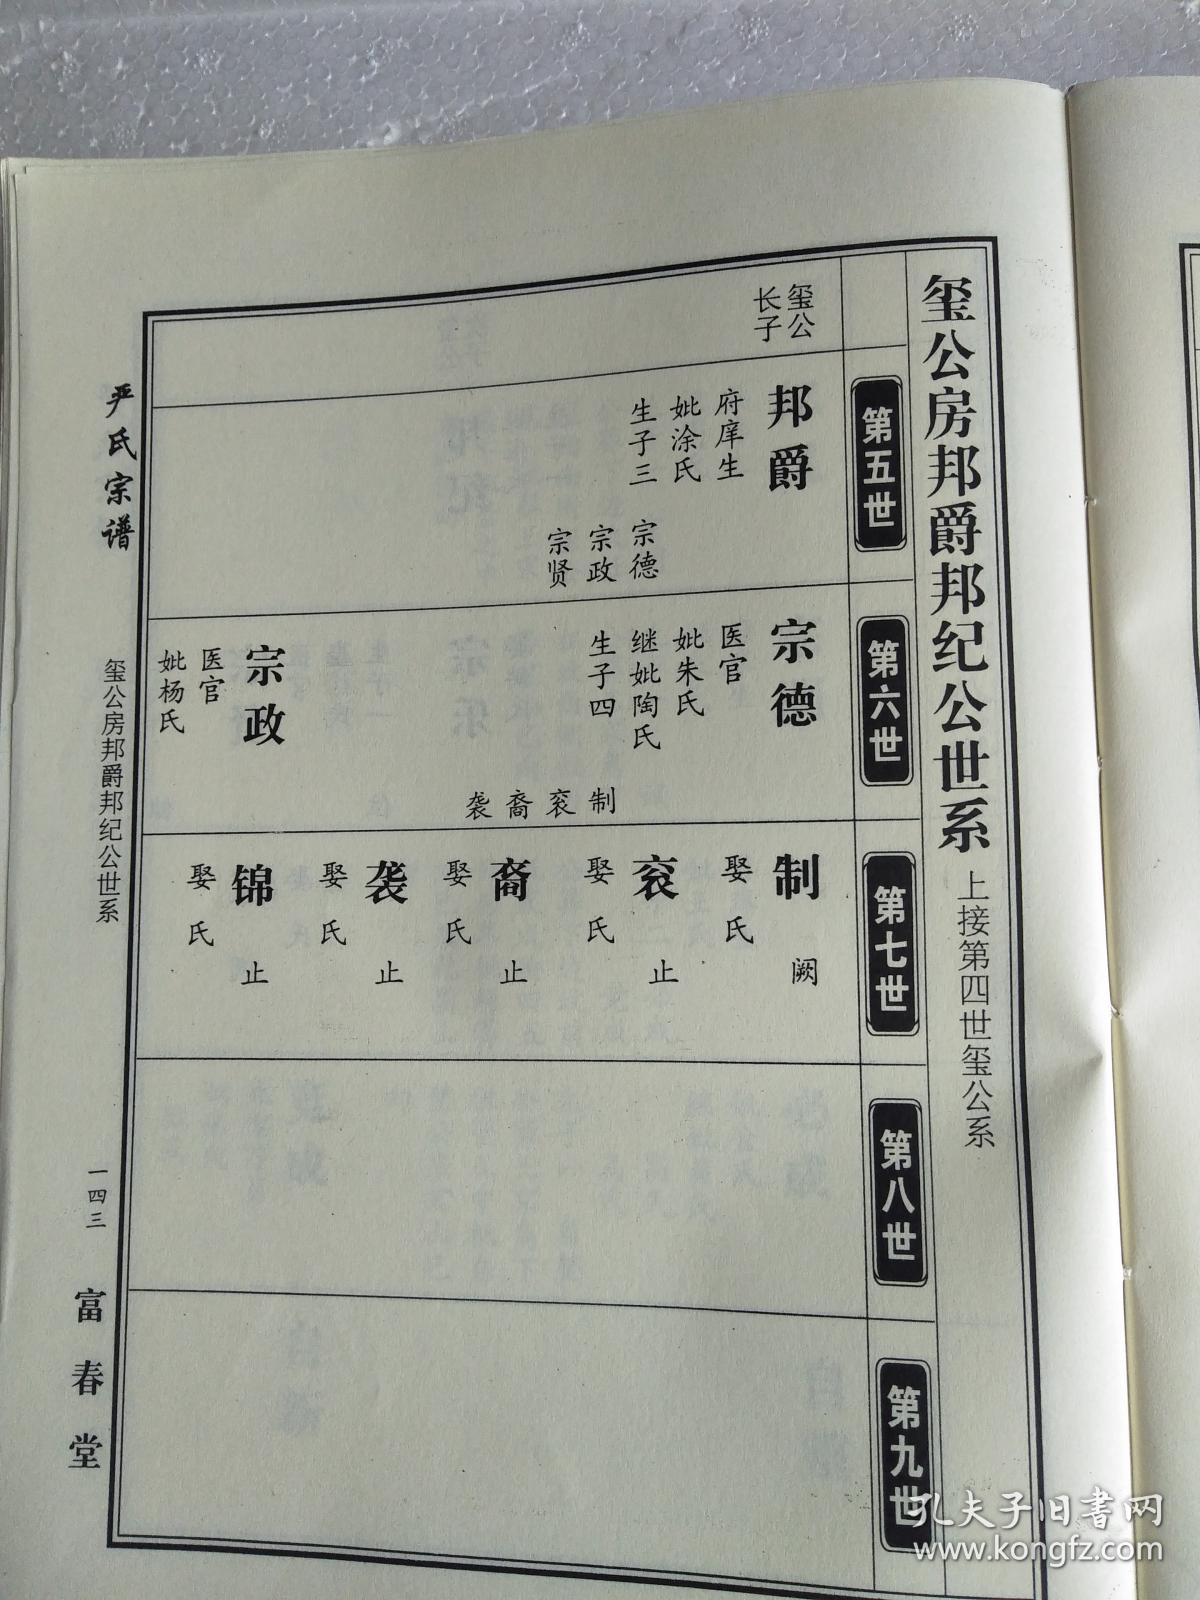 玺公房邦爵邦纪公世系 上接第四世玺公系
第五世
第六世
第七世
第八世
第九世
玺公
长子
邦爵
府庠生
妣涂氏
生子三
宗德
宗政
宗贤
宗德
医官
妣朱氏
继妣陶氏
生子四
制
衮
裔
袭
宗政
医官
妣杨氏
制
阙
娶氏
衮
止
娶氏
裔
止
娶氏
袭
止
娶氏
锦
止
娶氏
严氏宗谱
玺公房邦爵邦纪公世系
一四三
富春堂
孔夫子旧书网
www.kongfz.com